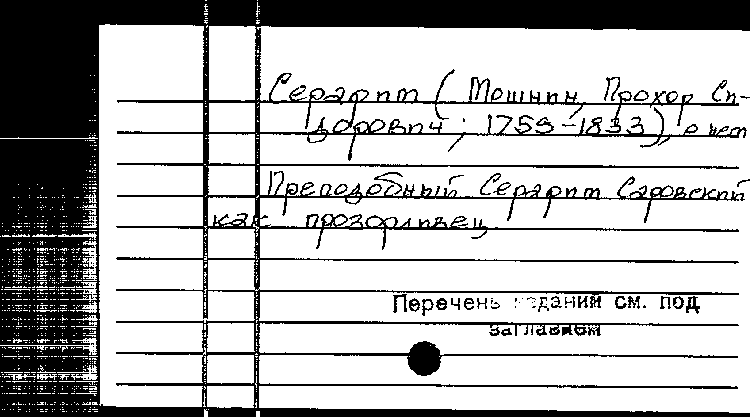 Серафим (Мошнин, Прохор Си-
дорович; 1759-1833), о нем
Преподобный Серафим Саровский
как прозорливец
Перечень изданий см. под
заглавием